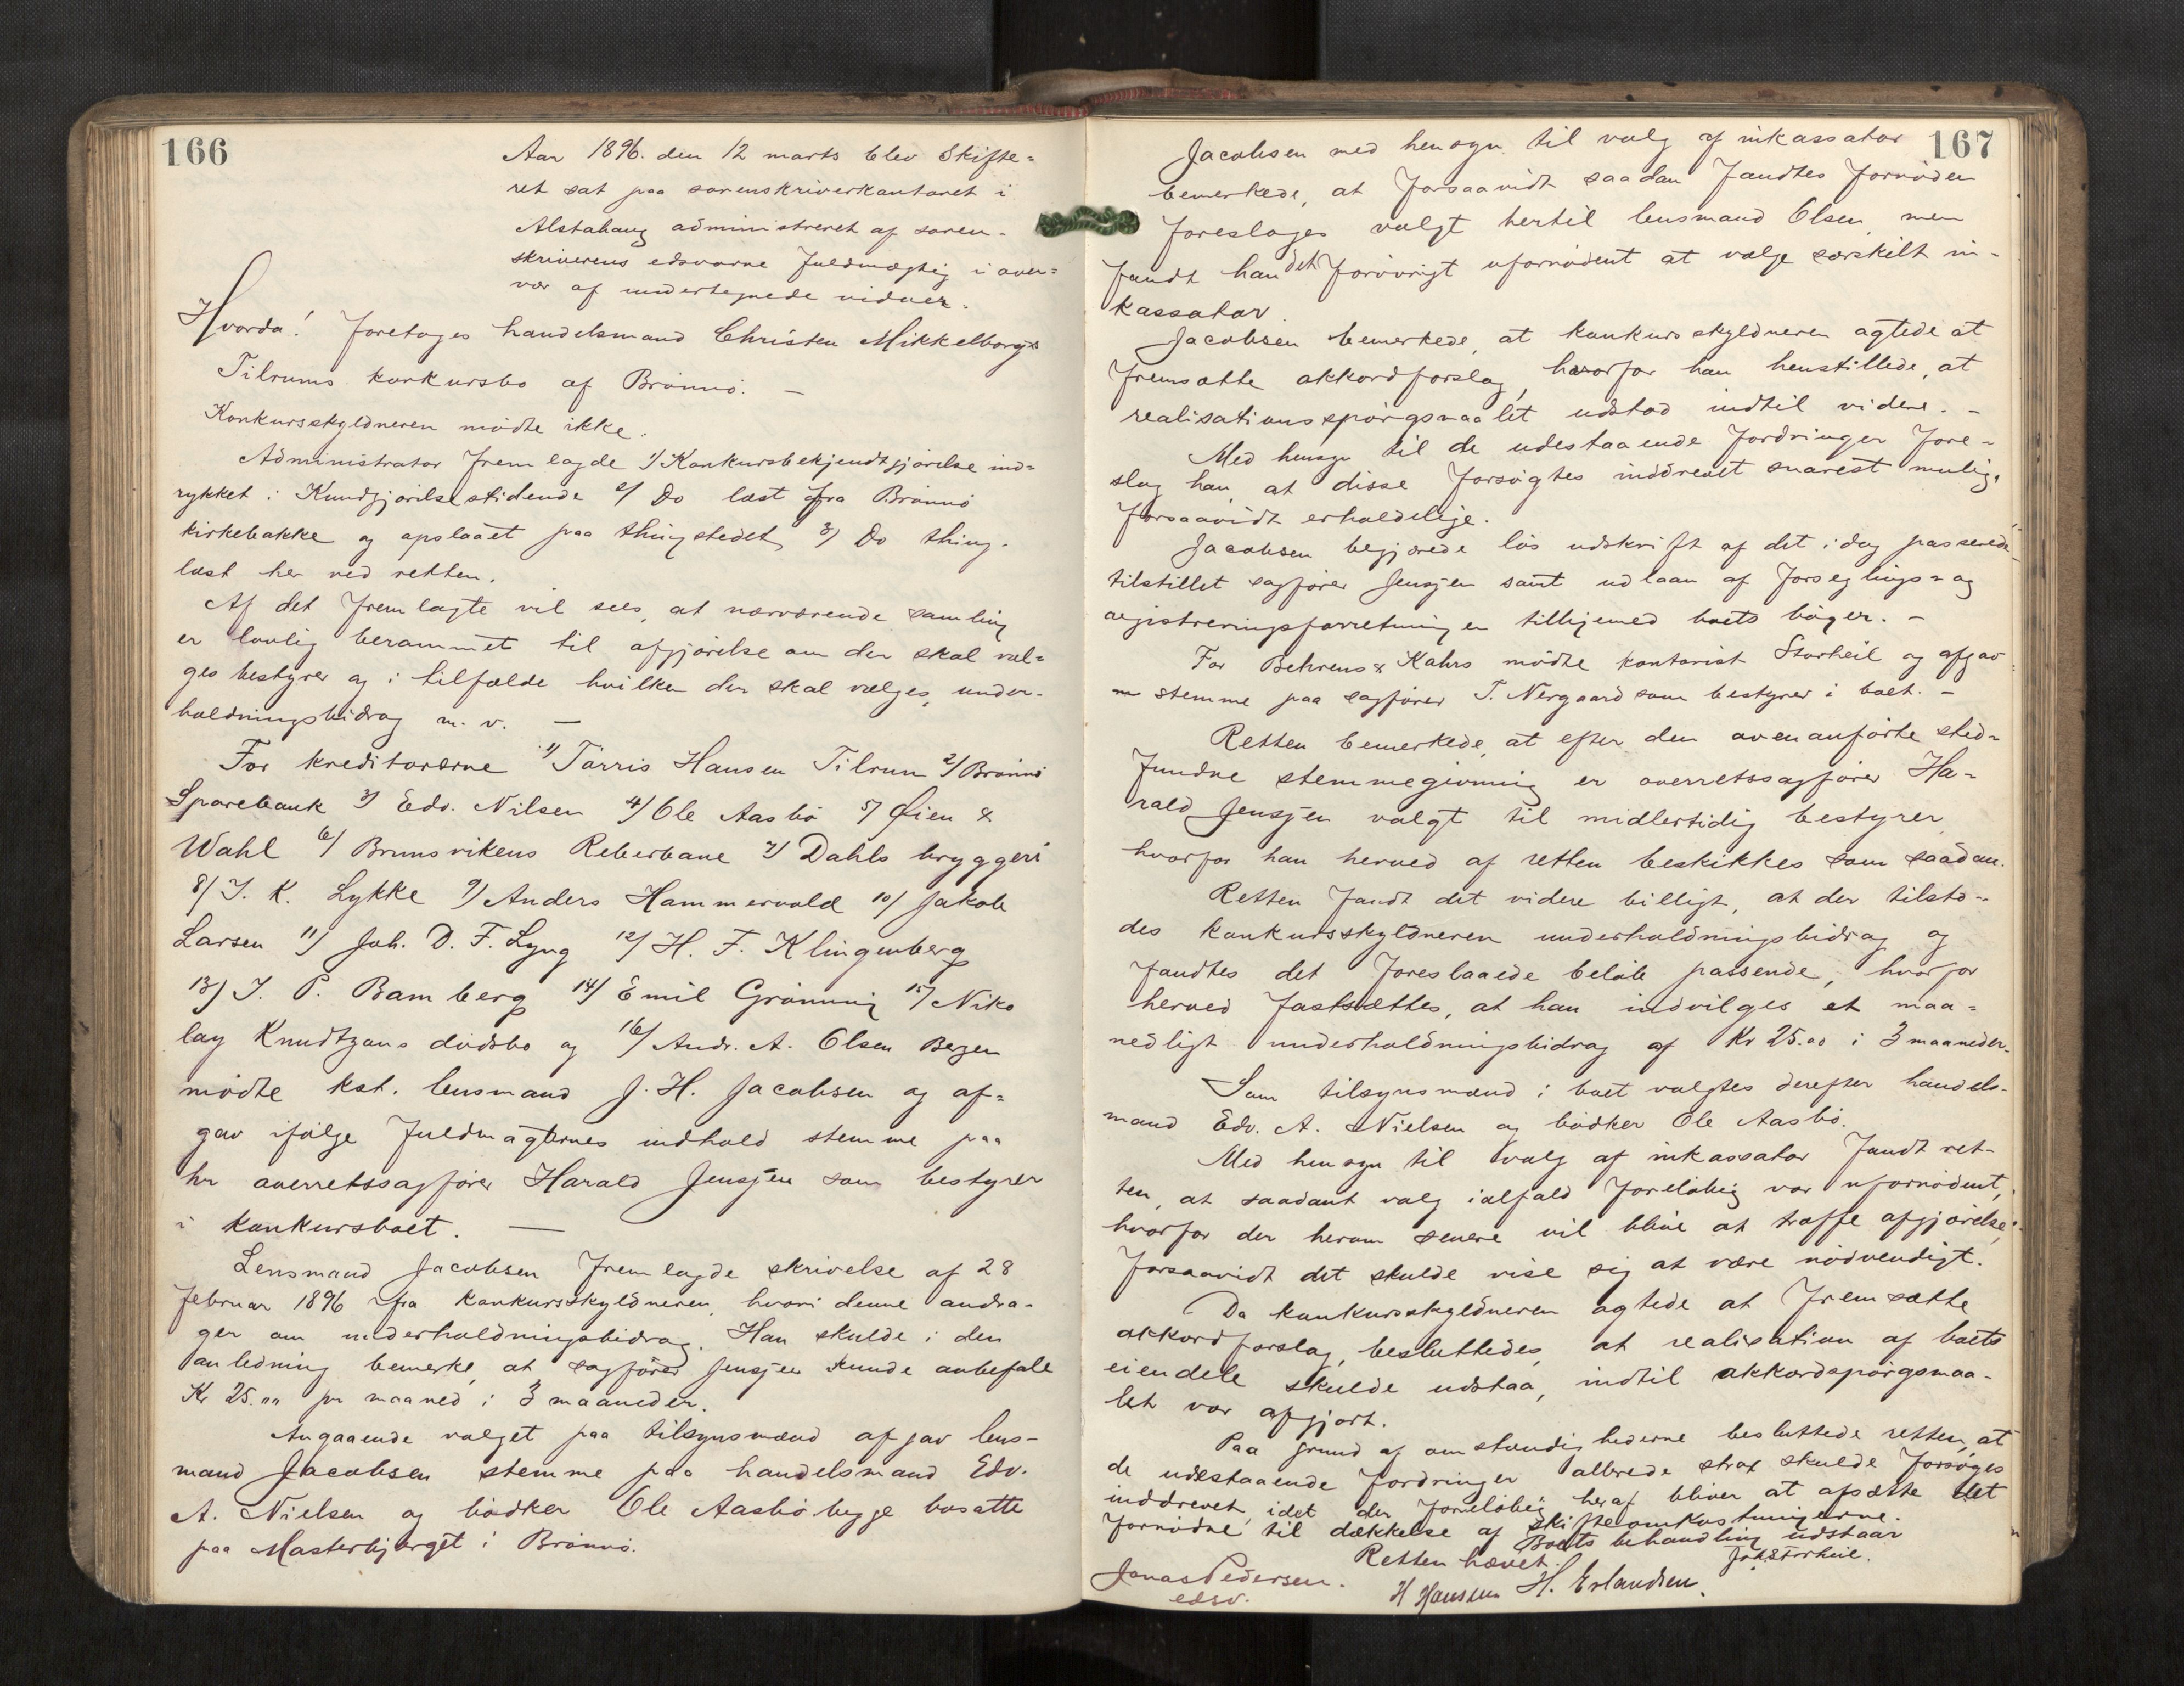 166
Aar 1896. den 12 marts blev Skifte=
ret sat paa sorenskriverkontoret i
Alstahaug administreret af soren-
skriverens edsvorne fuldmægtig i over=
vær af undertegnede vidner.
Hvorda! foretoges handelsmand Christen Mikkelborgs
Tilrums konkursbo af Brønnø. —
Konkursskyldneren mødte ikke.
Administrator fremlagde 1/ Konkursbekjendtgjørelse ind=
rykket i Kundgjørelsestidende 2/ Do læst fra Brønnø
kirkebakke og opslaaet paa thingstedet, 3/ Do thing.
læst her ved retten.
Af det fremlagte vil sees, at nærværende samling
er lovlig berammet til afgjørelse om der skal væl=
ges bestyrer og i tilfælde hvilken der skal vælges, under-
holdningsbidrag m. v. —
For kreditorerne 1/ Tørris Hansen Tilrum 2/ Brønnø
Sparebank 3/ Edv. Nilsen 4/ Ole Aasbø 5/ Øien &
Wahl 6/ Brunsvikens Reberbane 7/ Dahls bryggeri
8/ I. K. Lykke 9/ Anders Hammervold 10/ Jakob
Larsen 11/ Joh. D. F. Lyng 12/ H. F. Klingenberg
13/ I. P. Bamberg 14/ Emil Grønning 15/ Niko
lay Knudtzons dødsbo og 16/ Andr. A. Olsen Begen
mødte kst. lensmand J. H. Jacobsen og af=
gav ifølge fuldmagternes indhold stemme paa
hr overretssagfører Harald Jensjen som bestyrer
i konkursboet. —
Lensmand Jacobsen fremlagde skrivelse af 28
februar 1896 fra konkursskyldneren, hvori denne andra-
ger om underholdningsbidrag. Han skulde i den
anledning bemerke, at sagfører Jensjen kunde anbefale
Kr 25.00 pr maaned i 3 maaneder.
Angaaende valget paa tilsynsmænd afgav lens-
mand Jacobsen stemme paa handelsmand Edv.
A. Nielsen og bødker Ole Aasbø begge bosatte
paa Masterbjerget i Brønnø.
167
Jacobsen med hensyn til valg af inkassator
bemerkede, at forsaavidt saadan fandtes fornøden
foresloges valgt hertil lensmand Olsen, men
fandt han det forøvrigt ufornødent at vælge særskilt in-
kassator.
Jacobsen bemerkede, at konkursskyldneren agtede at
fremsætte akkordforslag, hvorfor han henstillede, at
realisationsspørgsmaalet udstod indtil videre. -
Med hensyn til de udestaaende fordringer fore-
slog han, at disse forsøgtes inddrevet snarest mulig,
forsaavidt erholdelige.
Jacobsen begjærede løs udskrift af det idag passerede
tilstillet sagfører Jensjen samt udlaan af forseglings- og
registreringsforretningen tilligemed boets bøger. -
For Behrens & Kahrs mødte kontorist Storheil og afgav
stemme paa sagfører T. Nergaard som bestyrer i boet. -
Retten bemerkede, at efter den ovenanførte sted-
fundne stemmegivning er overretssagfører Ha-
rald Jensjen valgt til midlertidig bestyrer
hvorfor han herved af retten beskikkes som saadan.
Retten fandt det videre billigt, at der tilsto-
des konkursskyldneren underholdningsbidrag og
fandtes det foreslaaede beløb passende, hvorfor
herved fastsættes, at han indvilges et maa=
nedligt underholdningsbidrag af Kr 25.00 i 3 maaneder.
Som tilsynsmænd i boet valgtes derefter handels-
mand Edv. A. Nielsen og bødker Ole Aasbø.
Med hensyn til valg af inkassator fandt ret-
ten, at saadant valg ialfald foreløbig var ufornødent,
hvorfor der herom senere vil blive at træffe afgjørelse,
forsaavidt det skulde vise sig at være nødvendigt.
Da konkursskyldneren agtede at fremsætte
akkordforslag, besluttedes, at realisation af boets
eiendele skulde udstaa, indtil akkordspørgsmaa-
let var afgjort.
Paa grund af omstændighederne besluttede retten, at
de udestaaende fordringer allerede strax skulde forsøges
inddrevet, idet der foreløbig heraf bliver at afsætte det
fornødne til dækkelse af skifteomkostningerne.
Boets behandling udstaar
Retten hævet.
Joh. Storheil.
Jonas Pedersen.
edsv.
H Hansen H. Erlandsen.